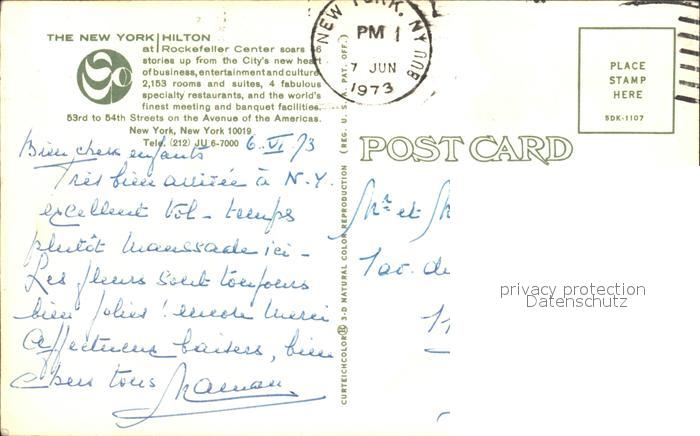 THE NEW YORK HILTON
at Rockefeller Center soars 46
stories up from the City's new heart
of business, entertainment and culture.
2,153 rooms and suites, 4 fabulous
specialty restaurants, and the world's
finest meeting and banquet facilities.
53rd to 54th Streets on the Avenue of the Americas.
New York, New York 10019
Tele. (212) JU 6-7000
Bien chers enfants 6-VI-73
Très bien arrivée à N.Y.
excellent vol - temps
plutôt maussade ici -
Les fleurs sont toujours
bien jolies ! encore merci
Affectueux baisers, bien
chers tous Maman
CURTEICHCOLOR® 3-D NATURAL COLOR REPRODUCTION (REG. U.S.A. PAT. OFF.)
NEW YORK, NY
PM
7 JUN
1973
PLACE
STAMP
HERE
5DK-1107
POST CARD
Mr et M
1 av. du
privacy protection
Datenschutz